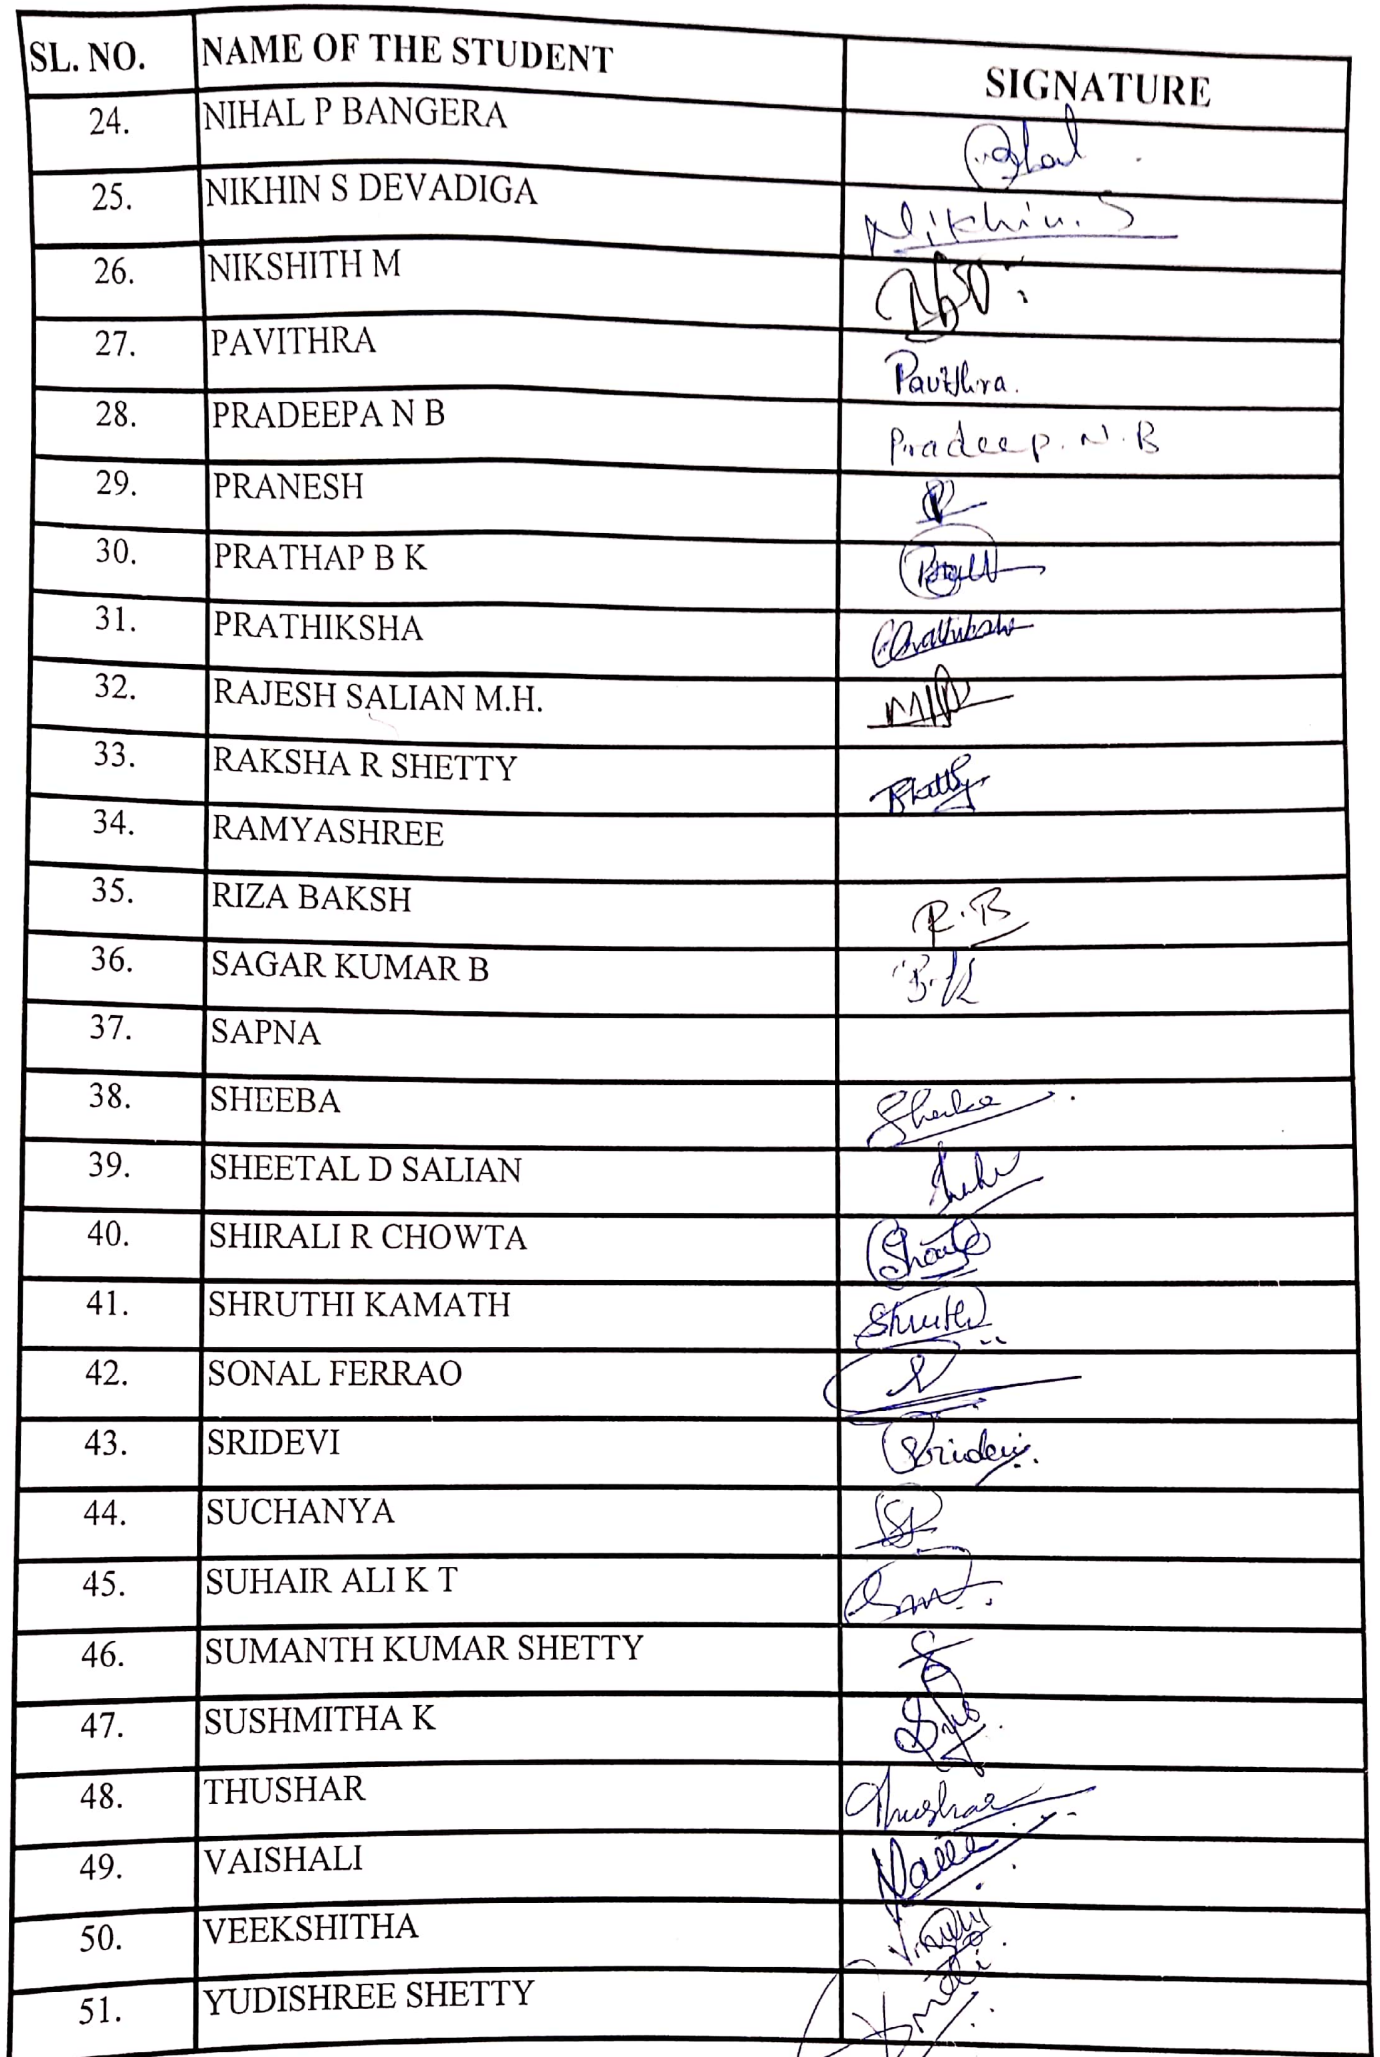 SL. NO. NAME OF THE STUDENT SIGNATURE
24. NIHAL P BANGERA
25. NIKHIN S DEVADIGA Nikhin. S
26. NIKSHITH M
27. PAVITHRA Pavithra.
28. PRADEEPA N B Pradeep. N. B
29. PRANESH
30. PRATHAP B K
31. PRATHIKSHA Prathiksha
32. RAJESH SALIAN M.H.
33. RAKSHA R SHETTY
34. RAMYASHREE
35. RIZA BAKSH R.B
36. SAGAR KUMAR B B.K
37. SAPNA
38. SHEEBA Sheeba
39. SHEETAL D SALIAN
40. SHIRALI R CHOWTA
41. SHRUTHI KAMATH Shruthi
42. SONAL FERRAO
43. SRIDEVI Sridevi
44. SUCHANYA
45. SUHAIR ALI K T
46. SUMANTH KUMAR SHETTY
47. SUSHMITHA K
48. THUSHAR Thushar
49. VAISHALI
50. VEEKSHITHA
51. YUDISHREE SHETTY